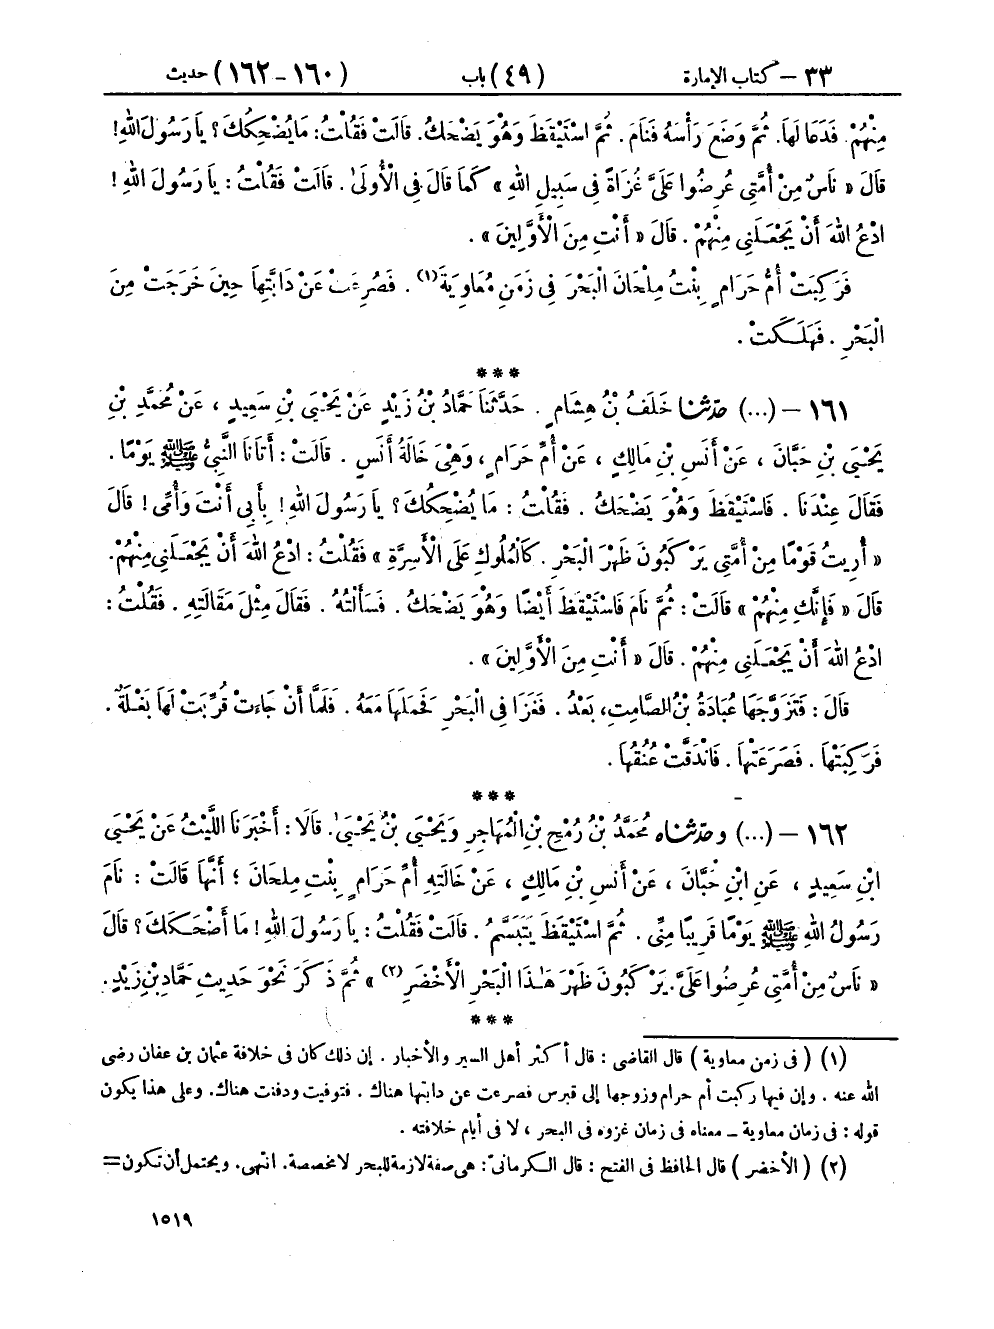 ٣٣ – كتاب الإمارة (٤٩) باب (١٦٠ – ١٦٢) حديث
مِنْهُمْ. فَدَعَا لَهَا. ثُمَّ وَضَعَ رَأْسَهُ فَنَامَ. ثُمَّ اسْتَيْقَظَ وَهُوَ يَضْحَكُ. قَالَتْ فَقُلْتُ: مَا يُضْحِكُكَ؟ يَا رَسُولَ اللهِ!
قَالَ « نَاسٌ مِنْ أُمَّتِي عُرِضُوا عَلَيَّ غُزَاةً فِي سَبِيلِ اللهِ » كَمَا قَالَ فِي الْأُولَىٰ. قَالَتْ فَقُلْتُ: يَا رَسُولَ اللهِ!
ادْعُ اللهَ أَنْ يَجْعَلَنِي مِنْهُمْ. قَالَ « أَنْتِ مِنَ الْأَوَّلِينَ ».
فَرَكِبَتْ أُمُّ حَرَامٍ بِنْتُ مِلْحَانَ الْبَحْرَ فِي زَمَنِ مُعَاوِيَةَ (١). فَصُرِعَتْ عَنْ دَابَّتِهَا حِينَ خَرَجَتْ مِنَ
الْبَحْرِ. فَهَلَكَتْ.
***
١٦١ – (...) حَدَّثَنَا خَلَفُ بْنُ هِشَامٍ. حَدَّثَنَا حَمَّادُ بْنُ زَيْدٍ عَنْ يَحْيَى بْنِ سَعِيدٍ، عَنْ مُحَمَّدِ بْنِ
يَحْيَى بْنِ حَبَّانَ، عَنْ أَنَسِ بْنِ مَالِكٍ، عَنْ أُمِّ حَرَامٍ، وَهْيَ خَالَةُ أَنَسٍ. قَالَتْ: أَتَانَا النَّبِيُّ ﷺ يَوْمًا.
فَقَالَ عِنْدَنَا. فَاسْتَيْقَظَ وَهُوَ يَضْحَكُ. فَقُلْتُ: مَا يُضْحِكُكَ؟ يَا رَسُولَ اللهِ! بِأَبِي أَنْتَ وَأُمِّي! قَالَ
« أُرِيتُ قَوْمًا مِنْ أُمَّتِي يَرْكَبُونَ ظَهْرَ الْبَحْرِ. كَالْمُلُوكِ عَلَى الْأَسِرَّةِ » فَقُلْتُ: ادْعُ اللهَ أَنْ يَجْعَلَنِي مِنْهُمْ.
قَالَ « فَإِنَّكِ مِنْهُمْ » قَالَتْ: ثُمَّ نَامَ فَاسْتَيْقَظَ أَيْضًا وَهُوَ يَضْحَكُ. فَسَأَلْتُهُ. فَقَالَ مِثْلَ مَقَالَتِهِ. فَقُلْتُ:
ادْعُ اللهَ أَنْ يَجْعَلَنِي مِنْهُمْ. قَالَ « أَنْتِ مِنَ الْأَوَّلِينَ ».
قَالَ: فَتَزَوَّجَهَا عُبَادَةُ بْنُ الصَّامِتِ، بَعْدُ. فَغَزَا فِي الْبَحْرِ فَحَمَلَهَا مَعَهُ. فَلَمَّا أَنْ جَاءَتْ قُرِّبَتْ لَهَا بَغْلَةٌ.
فَرَكِبَتْهَا. فَصَرَعَتْهَا. فَانْدَقَّتْ عُنُقُهَا.
***
١٦٢ – (...) وحَدَّثَنَاه مُحَمَّدُ بْنُ رُمْحِ بْنِ الْمُهَاجِرِ وَيَحْيَى بْنُ يَحْيَىٰ. قَالَا: أَخْبَرَنَا اللَّيْثُ عَنْ يَحْيَى
ابْنِ سَعِيدٍ، عَنِ ابْنِ حَبَّانَ، عَنْ أَنَسِ بْنِ مَالِكٍ، عَنْ خَالَتِهِ أُمِّ حَرَامٍ بِنْتِ مِلْحَانَ؛ أَنَّهَا قَالَتْ: نَامَ
رَسُولُ اللهِ ﷺ يَوْمًا قَرِيبًا مِنِّي. ثُمَّ اسْتَيْقَظَ يَتَبَسَّمُ. قَالَتْ فَقُلْتُ: يَا رَسُولَ اللهِ! مَا أَضْحَكَكَ؟ قَالَ
« نَاسٌ مِنْ أُمَّتِي عُرِضُوا عَلَيَّ. يَرْكَبُونَ ظَهْرَ هَٰذَا الْبَحْرِ الْأَخْضَرِ (٢) » ثُمَّ ذَكَرَ نَحْوَ حَدِيثِ حَمَّادِ بْنِ زَيْدٍ.
***
(١) (في زمن معاوية) قال القاضي: قال أكثر أهل السير والأخبار. إن ذلك كان في خلافة عثمان بن عفان رضي
الله عنه. وإن فيها ركبت أم حرام وزوجها إلى قبرس فصرعت عن دابتها هناك. فتوفيت ودفنت هناك. وعلى هذا يكون
قوله: في زمان معاوية – معناه في زمان غزوه في البحر، لا في أيام خلافته.
(٢) (الأخضر) قال الحافظ في الفتح: قال الكرمانيّ: هي صفة لازمة للبحر لا مخصصة. انتهى. ويحتمل أن تكون =
١٥١٩